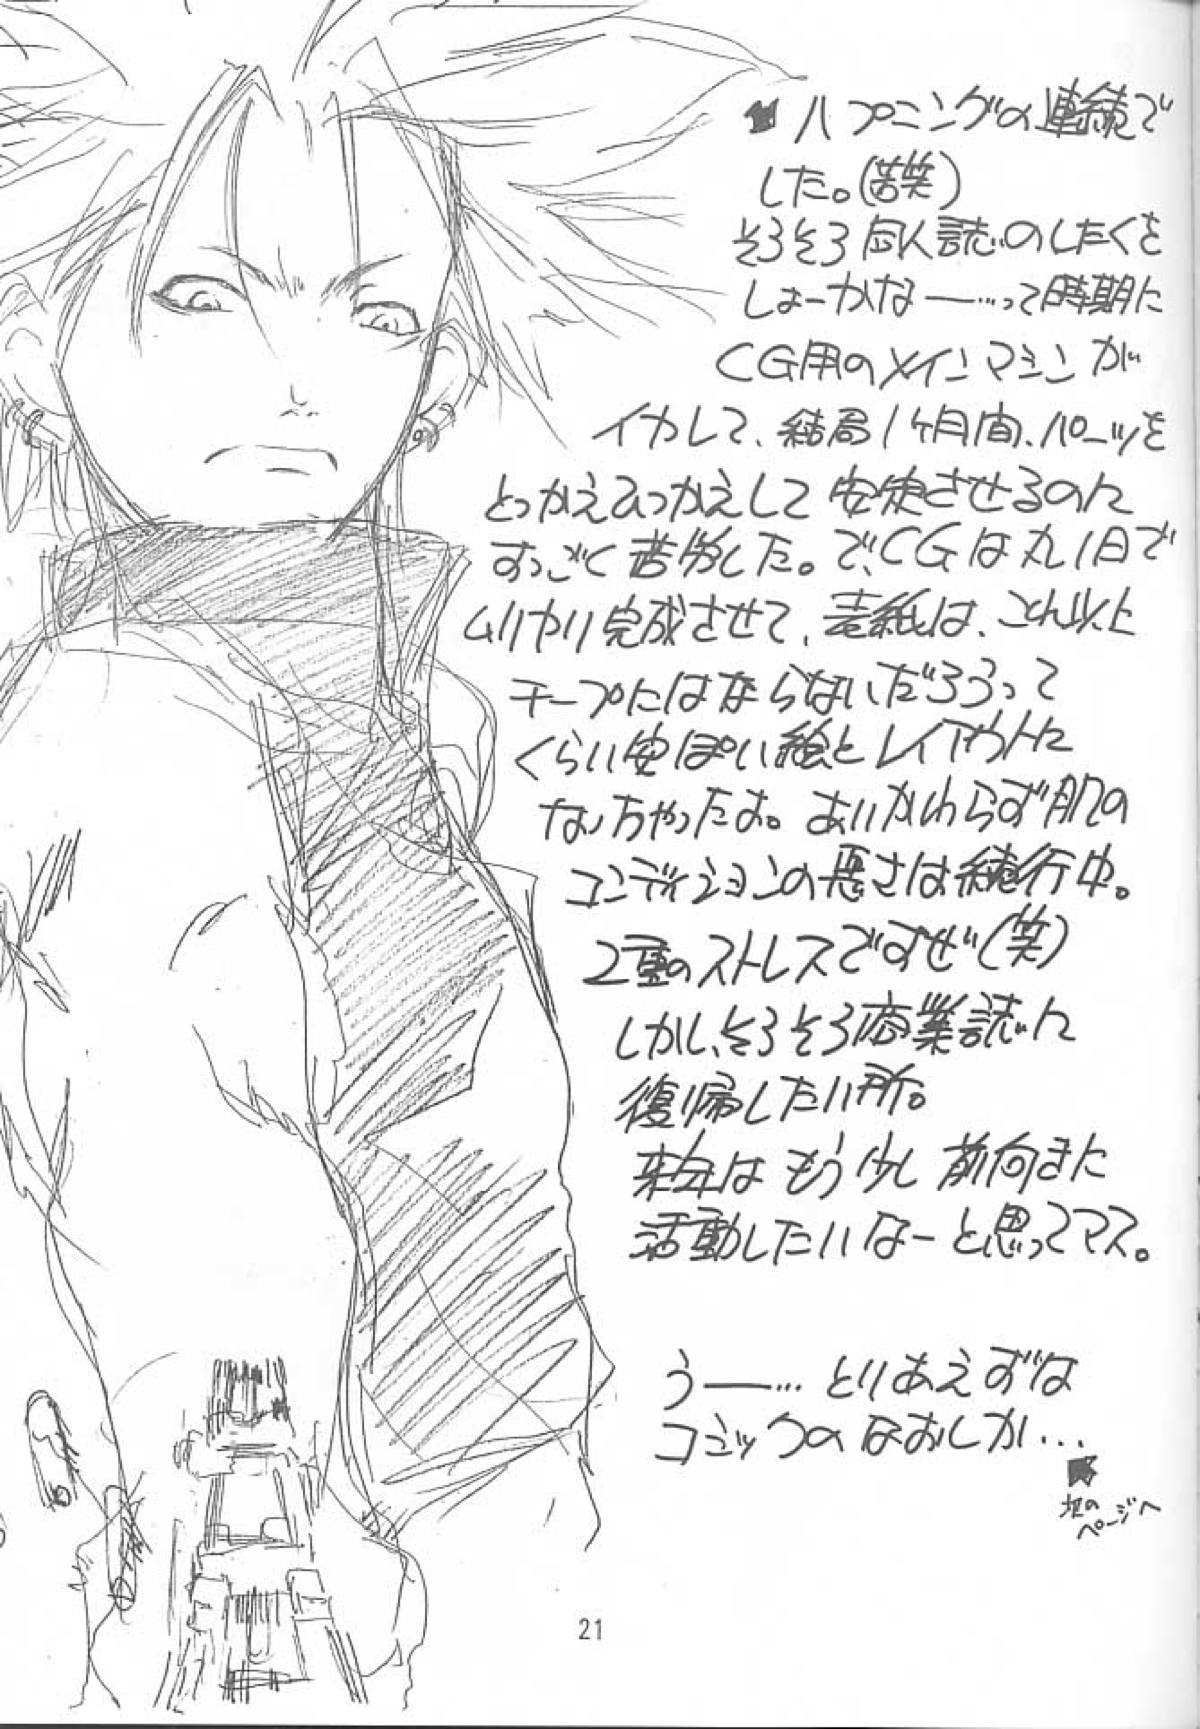 ハプニングの連続で
した。(苦笑)
そろそろ同人誌のしたくを
しよーかなー…って時期に
CG用のメインマシンが
イカレて、結局1ヶ月間、パーツを
とっかえひっかえして安定させるのに
すっごく苦労した。で、CGは丸1日で
ムリヤリ完成させて、表紙は、これ以上
チープにはならないだろうって
くらい安っぽい絵とレイアウトに
なっちゃったよ。あいかわらず肌の
コンディションの悪さは続行中。
2重のストレスですぜ(笑)
しかし、そろそろ商業誌に
復帰したい所。
来年はもう少し前向きに
活動したいなーと思ってマス。
うー…とりあえずな
コミックのなおしか…
次の
ページへ
21